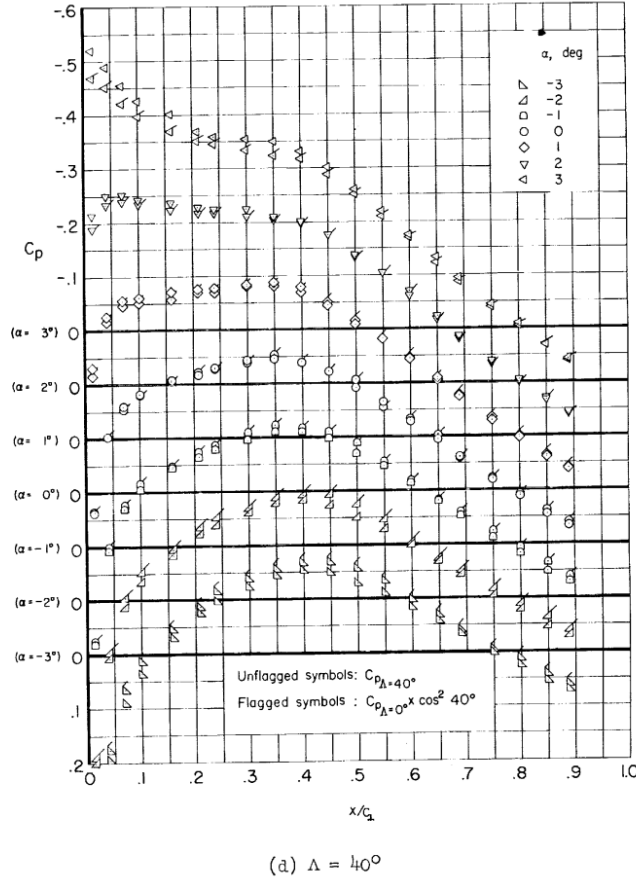 -.6
-.5
-.4
-.3
-.2
Cp
-.1
(α= 3°) 0
(α= 2°) 0
(α= 1°) 0
(α= 0°) 0
(α=-1°) 0
(α=-2°) 0
(α=-3°) 0
.1
.2
α, deg
-3
-2
-1
0
1
2
3
Unflagged symbols: CpΛ=40°
Flagged symbols : CpΛ=0° x cos² 40°
0 .1 .2 .3 .4 .5 .6 .7 .8 .9 1.0
(d) Λ = 40°